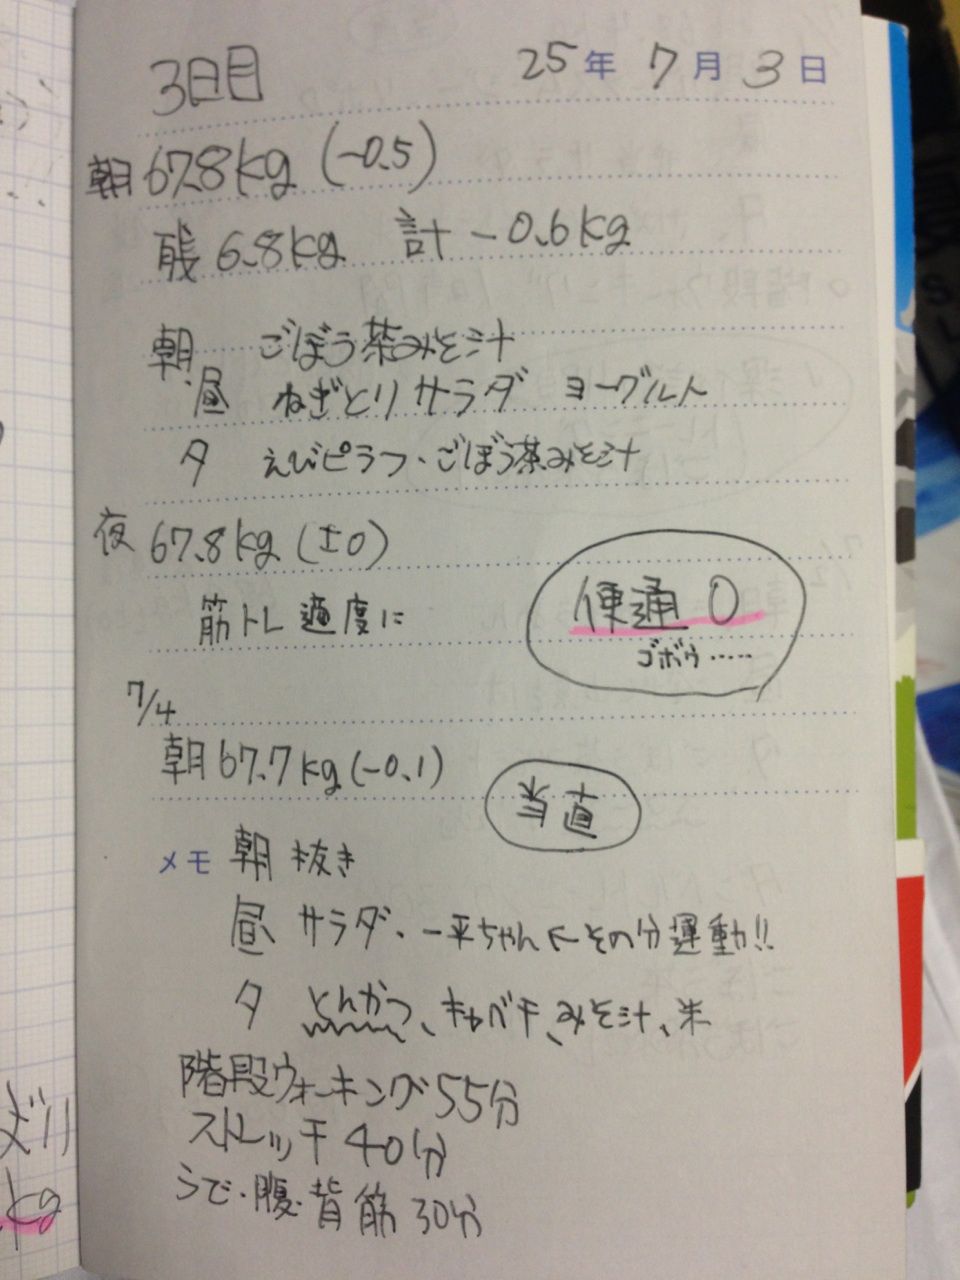 3日目 25年7月3日
朝 67.8kg (-0.5)
残 6.8kg 計 -0.6kg
朝 ごぼう茶みそ汁
昼 ねぎとりサラダ ヨーグルト
夕 えびピラフ・ごぼう茶みそ汁
夜 67.8kg (±0)
筋トレ 適度に
便通 0
ゴボウ……
7/4
朝 67.7kg (-0.1)
当直
メモ 朝 抜き
昼 サラダ、一平ちゃん←その分運動!!
夕 とんかつ、キャベチ、みそ汁、米
階段ウォーキング 55分
ストレッチ 40分
うで・腹・背筋 30分
kg